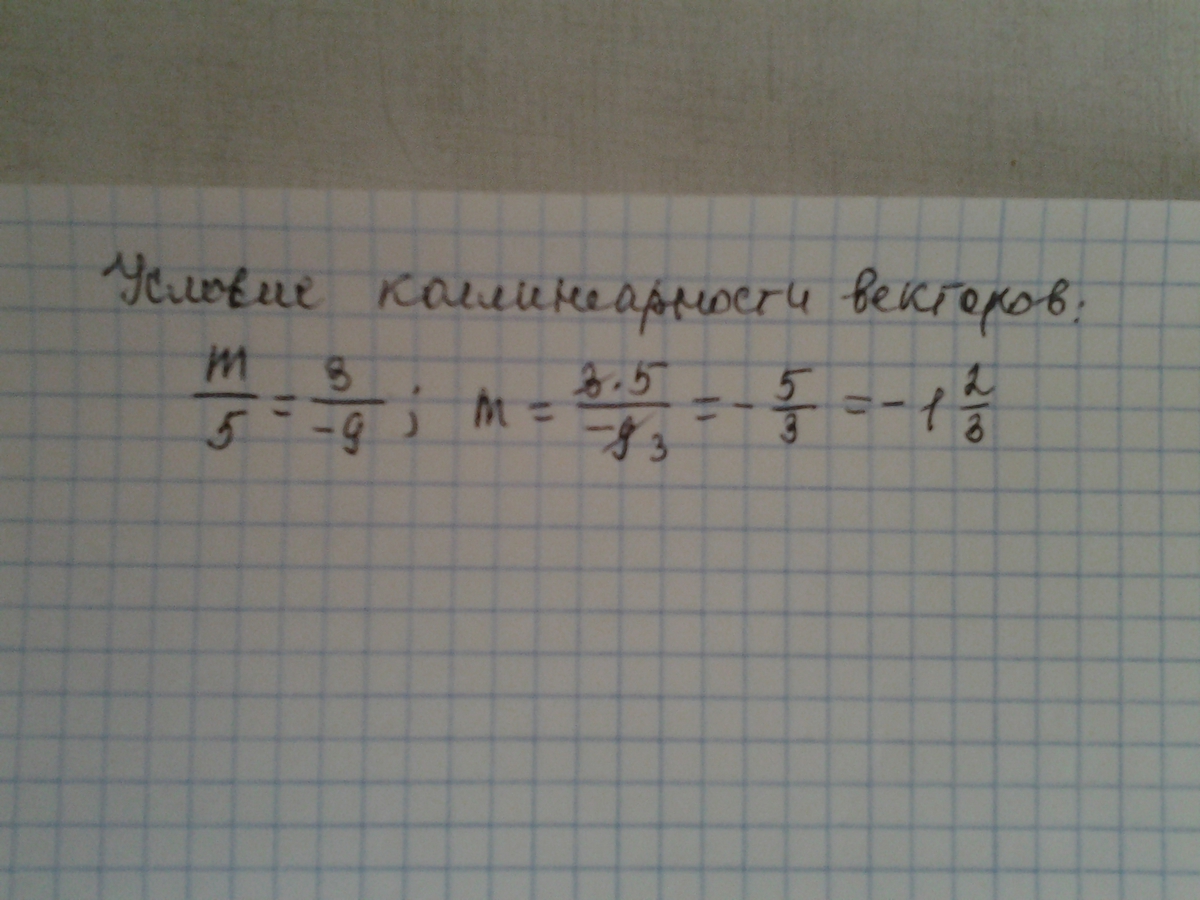 Условие коллинеарности векторов:
m/5 = 3/-9 ; m = 3·5/-9 3 = - 5/3 = -1 2/3